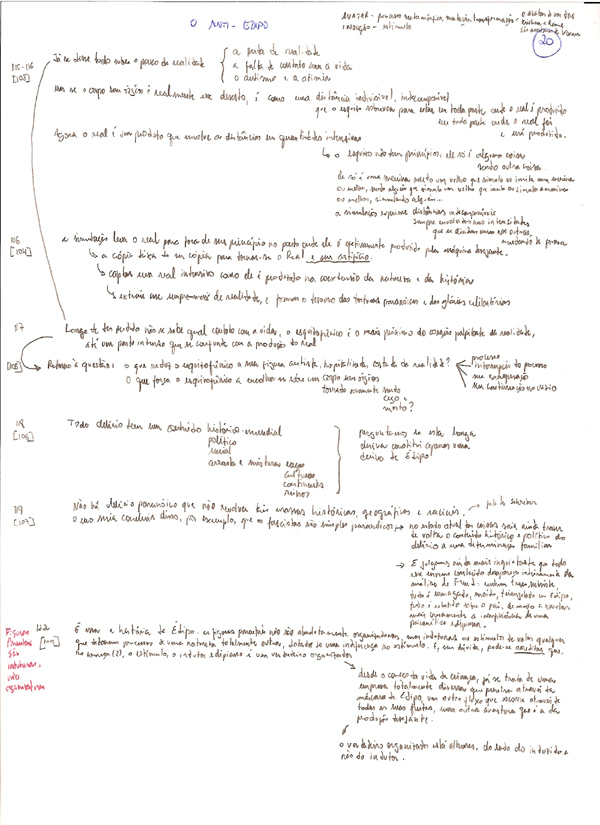 O ANTI-EDIPO
AVATAR - processo metamórfico, mutação, transformação
INDUÇÃO - estímulo
20
115-116
[103]
Já se disse tudo sobre o parco da realidade
a perda de realidade
a falta de contato com a vida
o autismo e a atimia
Mas se o corpo sem órgãos é realmente esse deserto, é como uma distância indivisível, indecomponível
que o esquizo sobrevoa para estar em toda parte onde o real é produzido
em toda parte onde o real foi
e será produzido.
Agora o real é um produto que envolve as distâncias em quantidades intensivas
o esquizo não tem princípios, ele só é alguma coisa
sendo outra coisa.
a simulação exprime distâncias indecomponíveis
sempre envolvidas nas intensidades
que se dividem umas nas outras,
mudando de forma
116
[104]
a simulação leva o real para fora de seu princípio no ponto onde ele é efetivamente produzido pela máquina desejante.
a cópia deixa de ser cópia para tornar-se o Real e seu artifício.
captar um real intensivo como ele é produzido na coextensão da natureza e da história
117
Longe de ter perdido não se sabe qual contato com a vida, o esquizofrênico é o mais próximo do coração palpitante da realidade,
até um ponto intenso que se confunte com a produção do real
[105]
Retorno à questão: o que reduz o esquizofrênico a sua figura autista, hospitalizada, cortada da realidade?
processo
interrupção do processo
sua continuação no vazio
O que força o esquizofrênico a encolher-se sobre um corpo sem órgãos
tornado novamente surdo
cego e
morto?
118
[106]
Todo delírio tem um conteúdo histórico-mundial
político
racial
arrasta e mistura raças
culturas
continentes
reinos
perguntamos se esta longa
deriva constitui apenas uma
deriva de Édipo
119
[107]
Não há delírio paranóico que não revolva tais massas históricas, geográficas e raciais.
o erro seria concluir disso, por exemplo, que os fascistas são simples paranóicos
de volta o conteúdo histórico e político do
delírio a uma determinação familiar
E julgamos ainda mais inquietante que todo
esse enorme conteúdo desapareça inteiramente da
análise de Freud: nenhum traço subsiste,
tudo é esmagado, moído, triangulado em Édipo,
tudo é rebatido sobre o pai, de modo a revelar
mais cruamente a insuficiência de uma
psicanálise edipiana.
Figuras
Parentais
são
indutoras,
não
organizadoras
122
É essa a história de Édipo: as figuras parentais não são absolutamente organizadoras, mas indutoras ou estímulos de valor qualquer
que detonam processos de uma natureza totalmente outra, dotados de uma indiferença ao estímulo. E, sem dúvida, pode-se acreditar que,
no começo (?), o estímulo, o indutor edipiano é um verdadeiro organizador
desde o começo da vida da criança, já se trata de uma
empresa totalmente diversa que penetra através da
máscara de Édipo, um outro fluxo que escorre através de
todas as suas fendas, uma outra aventura que é a da
produção desejante.
o verdadeiro organizador está alhures, do lado do induzido e
não do indutor.